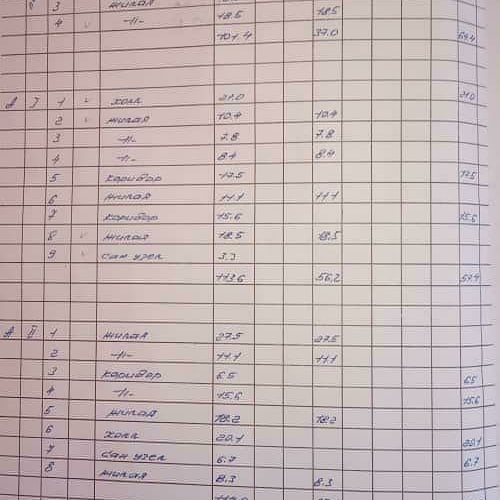 3 жилая
4 -//- 18.5 18.5
101.4 37.0 64.4
А I 1 холл 21.0 21.0
2 жилая 10.4 10.4
3 -//- 7.8 7.8
4 -//- 8.4 8.4
5 коридор 17.5 17.5
6 жилая 11.1 11.1
7 коридор 15.6 15.6
8 жилая 18.5 18.5
9 сан узел 3.3
113.6 56.2 57.4
А II 1 жилая 27.5 27.5
2 -//- 11.1 11.1
3 коридор 6.5 6.5
4 -//- 15.6 15.6
5 жилая 18.2 18.2
6 холл 20.1 20.1
7 сан узел 6.7 6.7
8 жилая 8.3 8.3